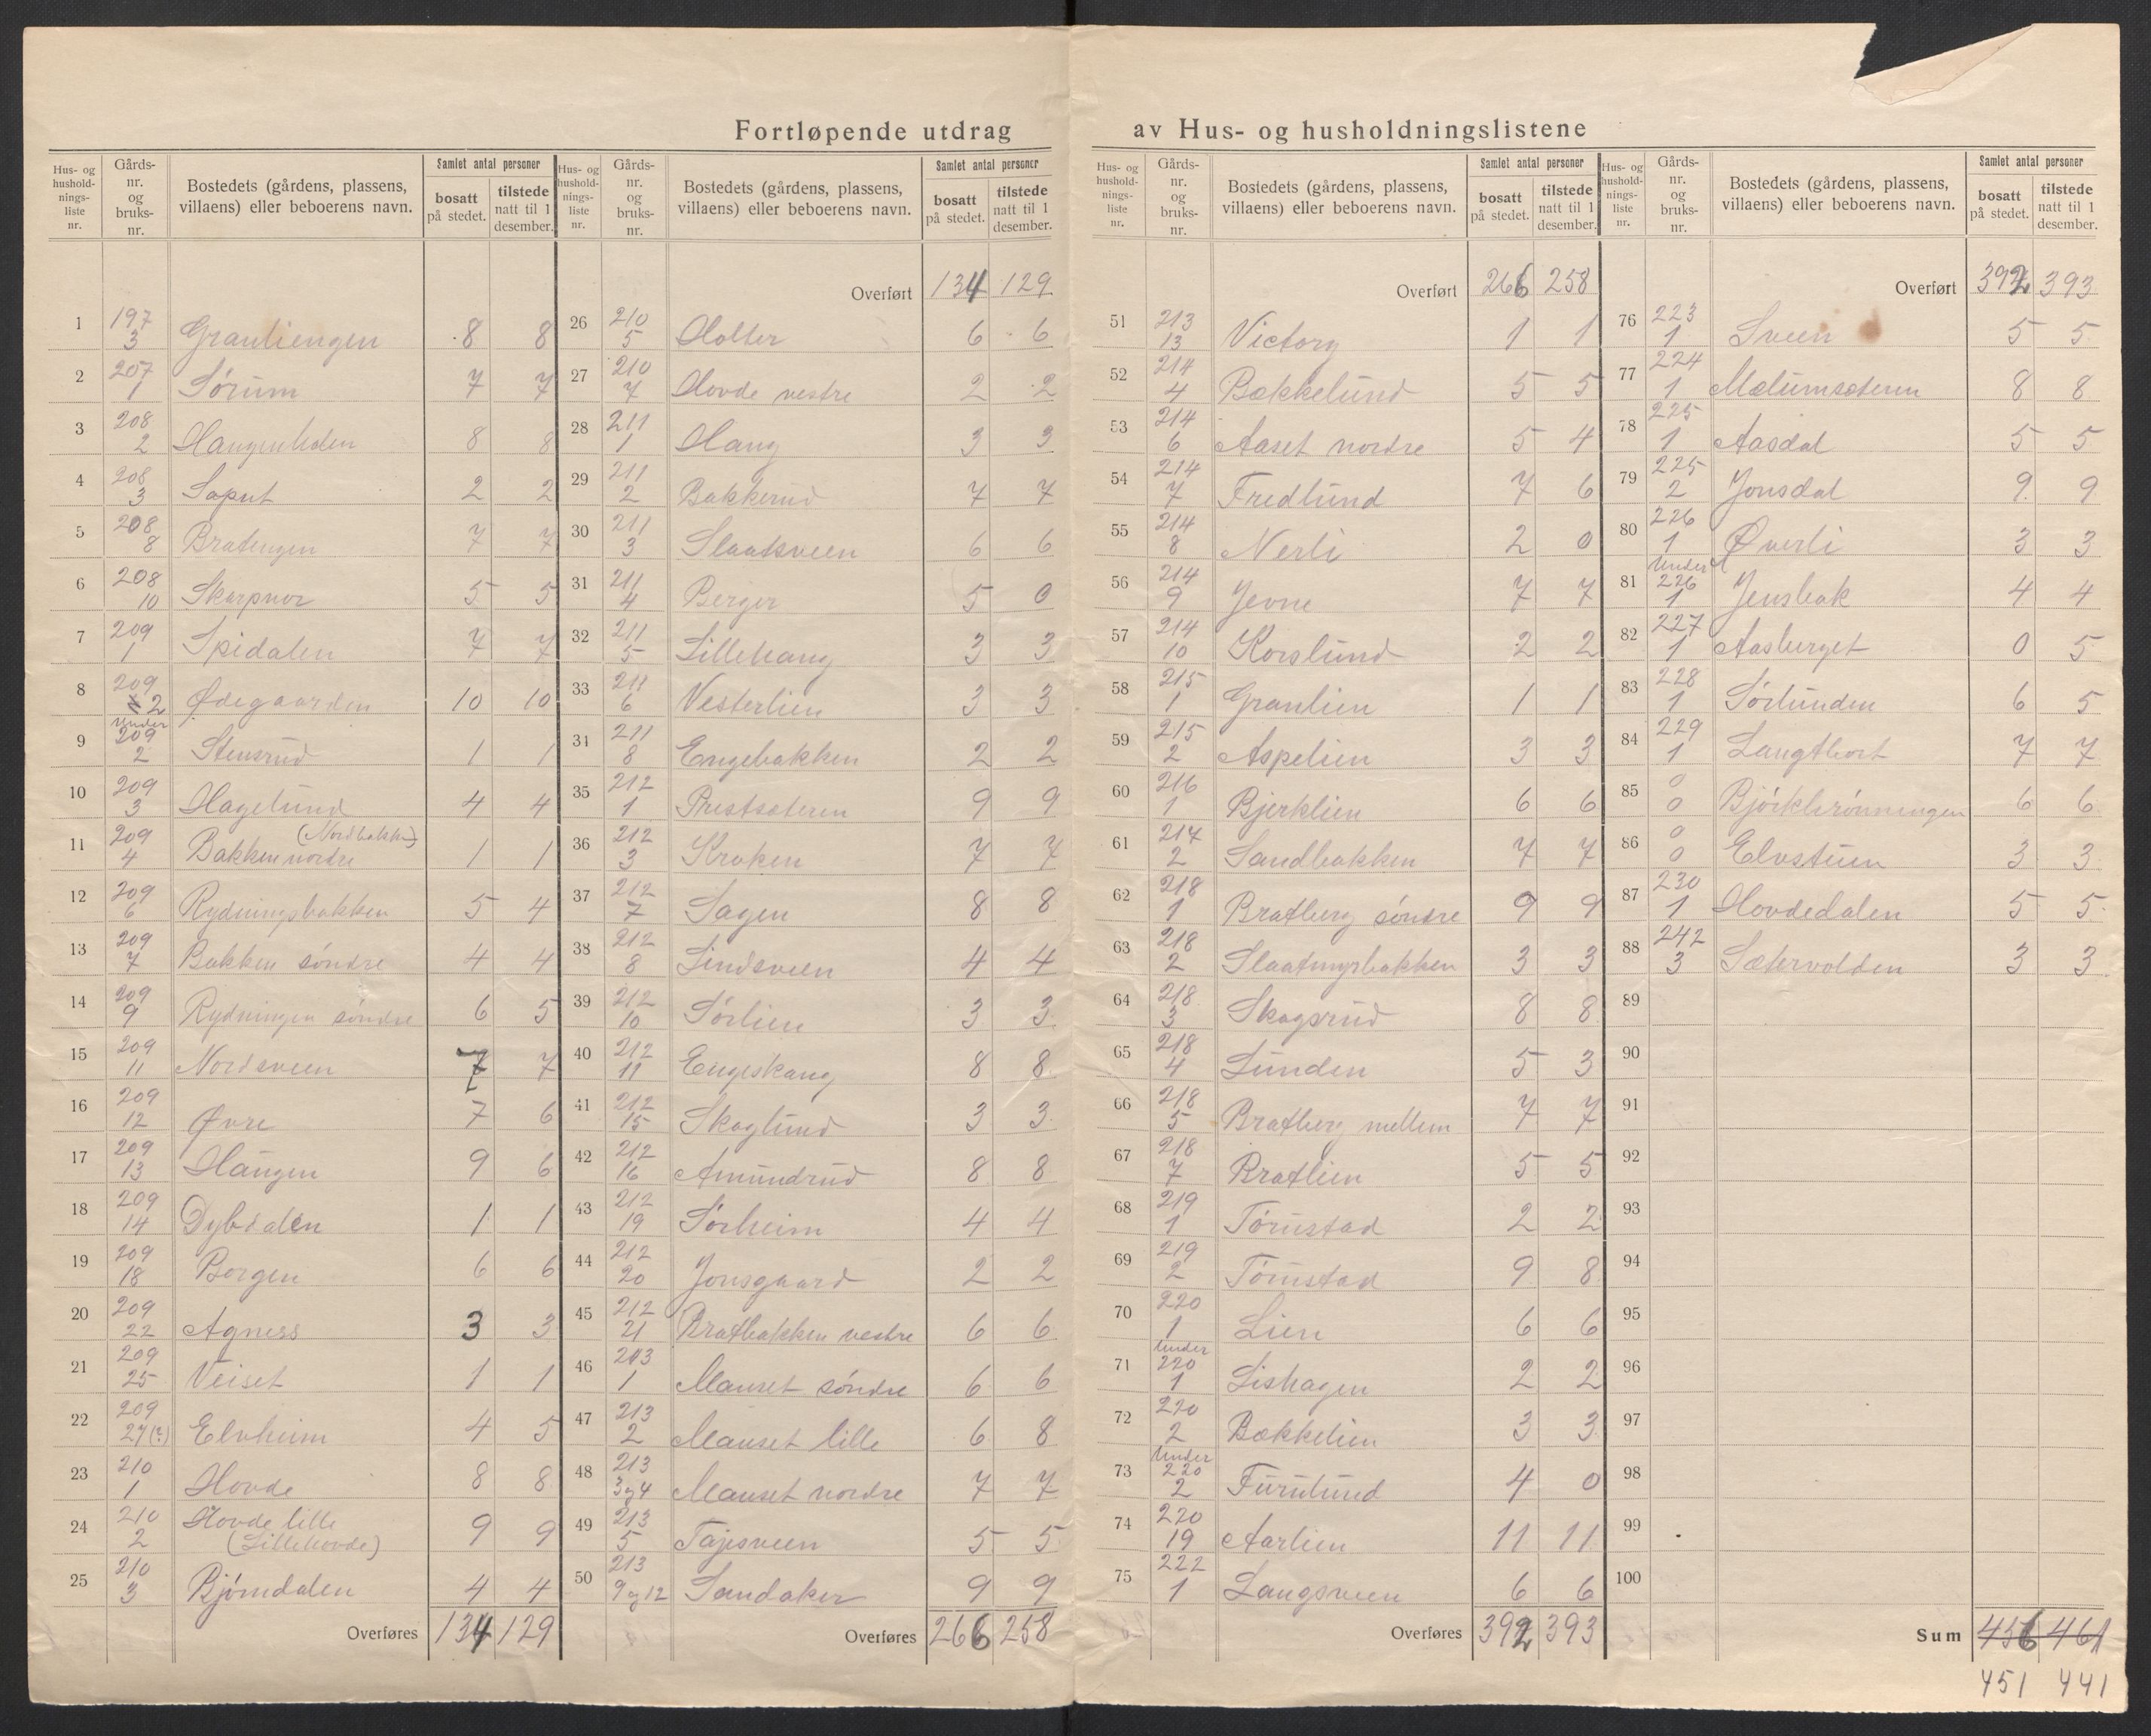 Fortløpende utdrag av Hus- og husholdningslistene
Hus- og husholdningsliste nr. | Gårdsnr. og bruksnr. | Bostedets (gårdens, plassens, villaens) eller beboerens navn. | Samlet antal personer bosatt på stedet. | tilstede natt til 1 desember.
1 197 3 Granliengen 8 8
2 207 1 Sørum 7 7
3 208 2 Haugenheden 8 8
4 208 3 Saput 2 2
5 208 8 Bratengen 7 7
6 208 10 Skarpnor 5 5
7 209 1 Spidalen 7 7
8 209 2 Ødegaarden 10 10
9 under 209 2 Stensrud 1 1
10 209 3 Hagelund 4 4
11 209 4 Bakken nordre (Nordbakken) 1 1
12 209 6 Rydningsbakken 5 4
13 209 7 Bakken søndre 4 4
14 209 9 Rydningen søndre 6 5
15 209 11 Nordsveen 7 7
16 209 12 Øvre 7 6
17 209 13 Haugen 9 6
18 209 14 Dybdalen 1 1
19 209 18 Borgen 6 6
20 209 22 Agness 3 3
21 209 25 Veiset 1 1
22 209 27(?) Elvheim 4 5
23 210 1 Hovde 8 8
24 210 2 Hovde lille (Lillehovde) 9 9
25 210 3 Bjørndalen 4 4
Overføres 134 129
Overført 134 129
26 210 5 Holter 6 6
27 210 7 Hovde vestre 2 2
28 211 1 Haug 3 3
29 211 2 Bakkerud 7 7
30 211 3 Slaatsveen 6 6
31 211 4 Berger 5 0
32 211 5 Lillehaug 3 3
33 211 6 Vesterlien 3 3
34 211 8 Engebakken 2 2
35 212 1 Prestsæteren 9 9
36 212 3 Kroken 7 7
37 212 7 Sagen 8 8
38 212 8 Lindsveen 4 4
39 212 10 Sørlien 3 3
40 212 11 Engeskaug 8 8
41 212 15 Skoglund 3 3
42 212 16 Amundrud 8 8
43 212 19 Sørheim 4 4
44 212 20 Jonsgaard 2 2
45 212 21 Bratbakken vestre 6 6
46 213 1 Mauset søndre 6 6
47 213 2 Mauset lille 6 8
48 213 3 og 4 Mauset nordre 7 7
49 213 5 Tajesveen 5 5
50 213 9 og 12 Sandaker 9 9
Overføres 266 258
Overført 266 258
51 213 13 Victory 1 1
52 214 4 Bækkelund 5 5
53 214 6 Aaset nordre 5 4
54 214 7 Fredlund 7 6
55 214 8 Nerli 2 0
56 214 9 Jevne 7 7
57 214 10 Korslund 2 2
58 215 1 Granlien 1 1
59 215 2 Aspelien 3 3
60 216 1 Bjerklien 6 6
61 217 2 Sandbakken 7 7
62 218 1 Bratberg søndre 9 9
63 218 2 Slaatmyrbakken 3 3
64 218 3 Skogsrud 8 8
65 218 4 Lunden 5 3
66 218 5 Bratberg mellem 7 7
67 218 7 Bratlien 5 5
68 219 1 Tørrustad 2 2
69 219 2 Tørrustad 9 8
70 220 1 Lien 6 6
71 under 220 1 Lishagen 2 2
72 220 2 Bækkelien 3 3
73 under 220 2 Furulund 4 0
74 220 19 Aarlien 11 11
75 222 1 Langsveen 6 6
Overføres 392 393
Overført 392 393
76 223 1 Sveen 5 5
77 224 1 Mælumsæteren 8 8
78 225 1 Aasdal 5 5
79 225 2 Jonsdal 9 9
80 226 1 Øverli 3 3
81 under 226 1 Jensbak 4 4
82 227 1 Aasberget 0 5
83 228 1 Sørlunden 6 5
84 229 1 Langtbort 7 7
85 0 0 Bjørkbrønningen 6 6
86 0 0 Elvstuen 3 3
87 230 1 Hovdedalen 5 5
88 242 3 Sætervolden 3 3
89
90
91
92
93
94
95
96
97
98
99
100
Sum 456 461
451 441